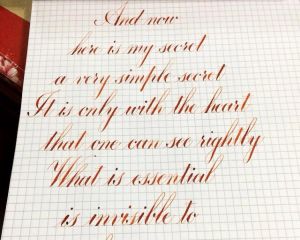 And now
here is my secret
a very simple secret
It is only with the heart
that one can see rightly
What is essential
is invisible to